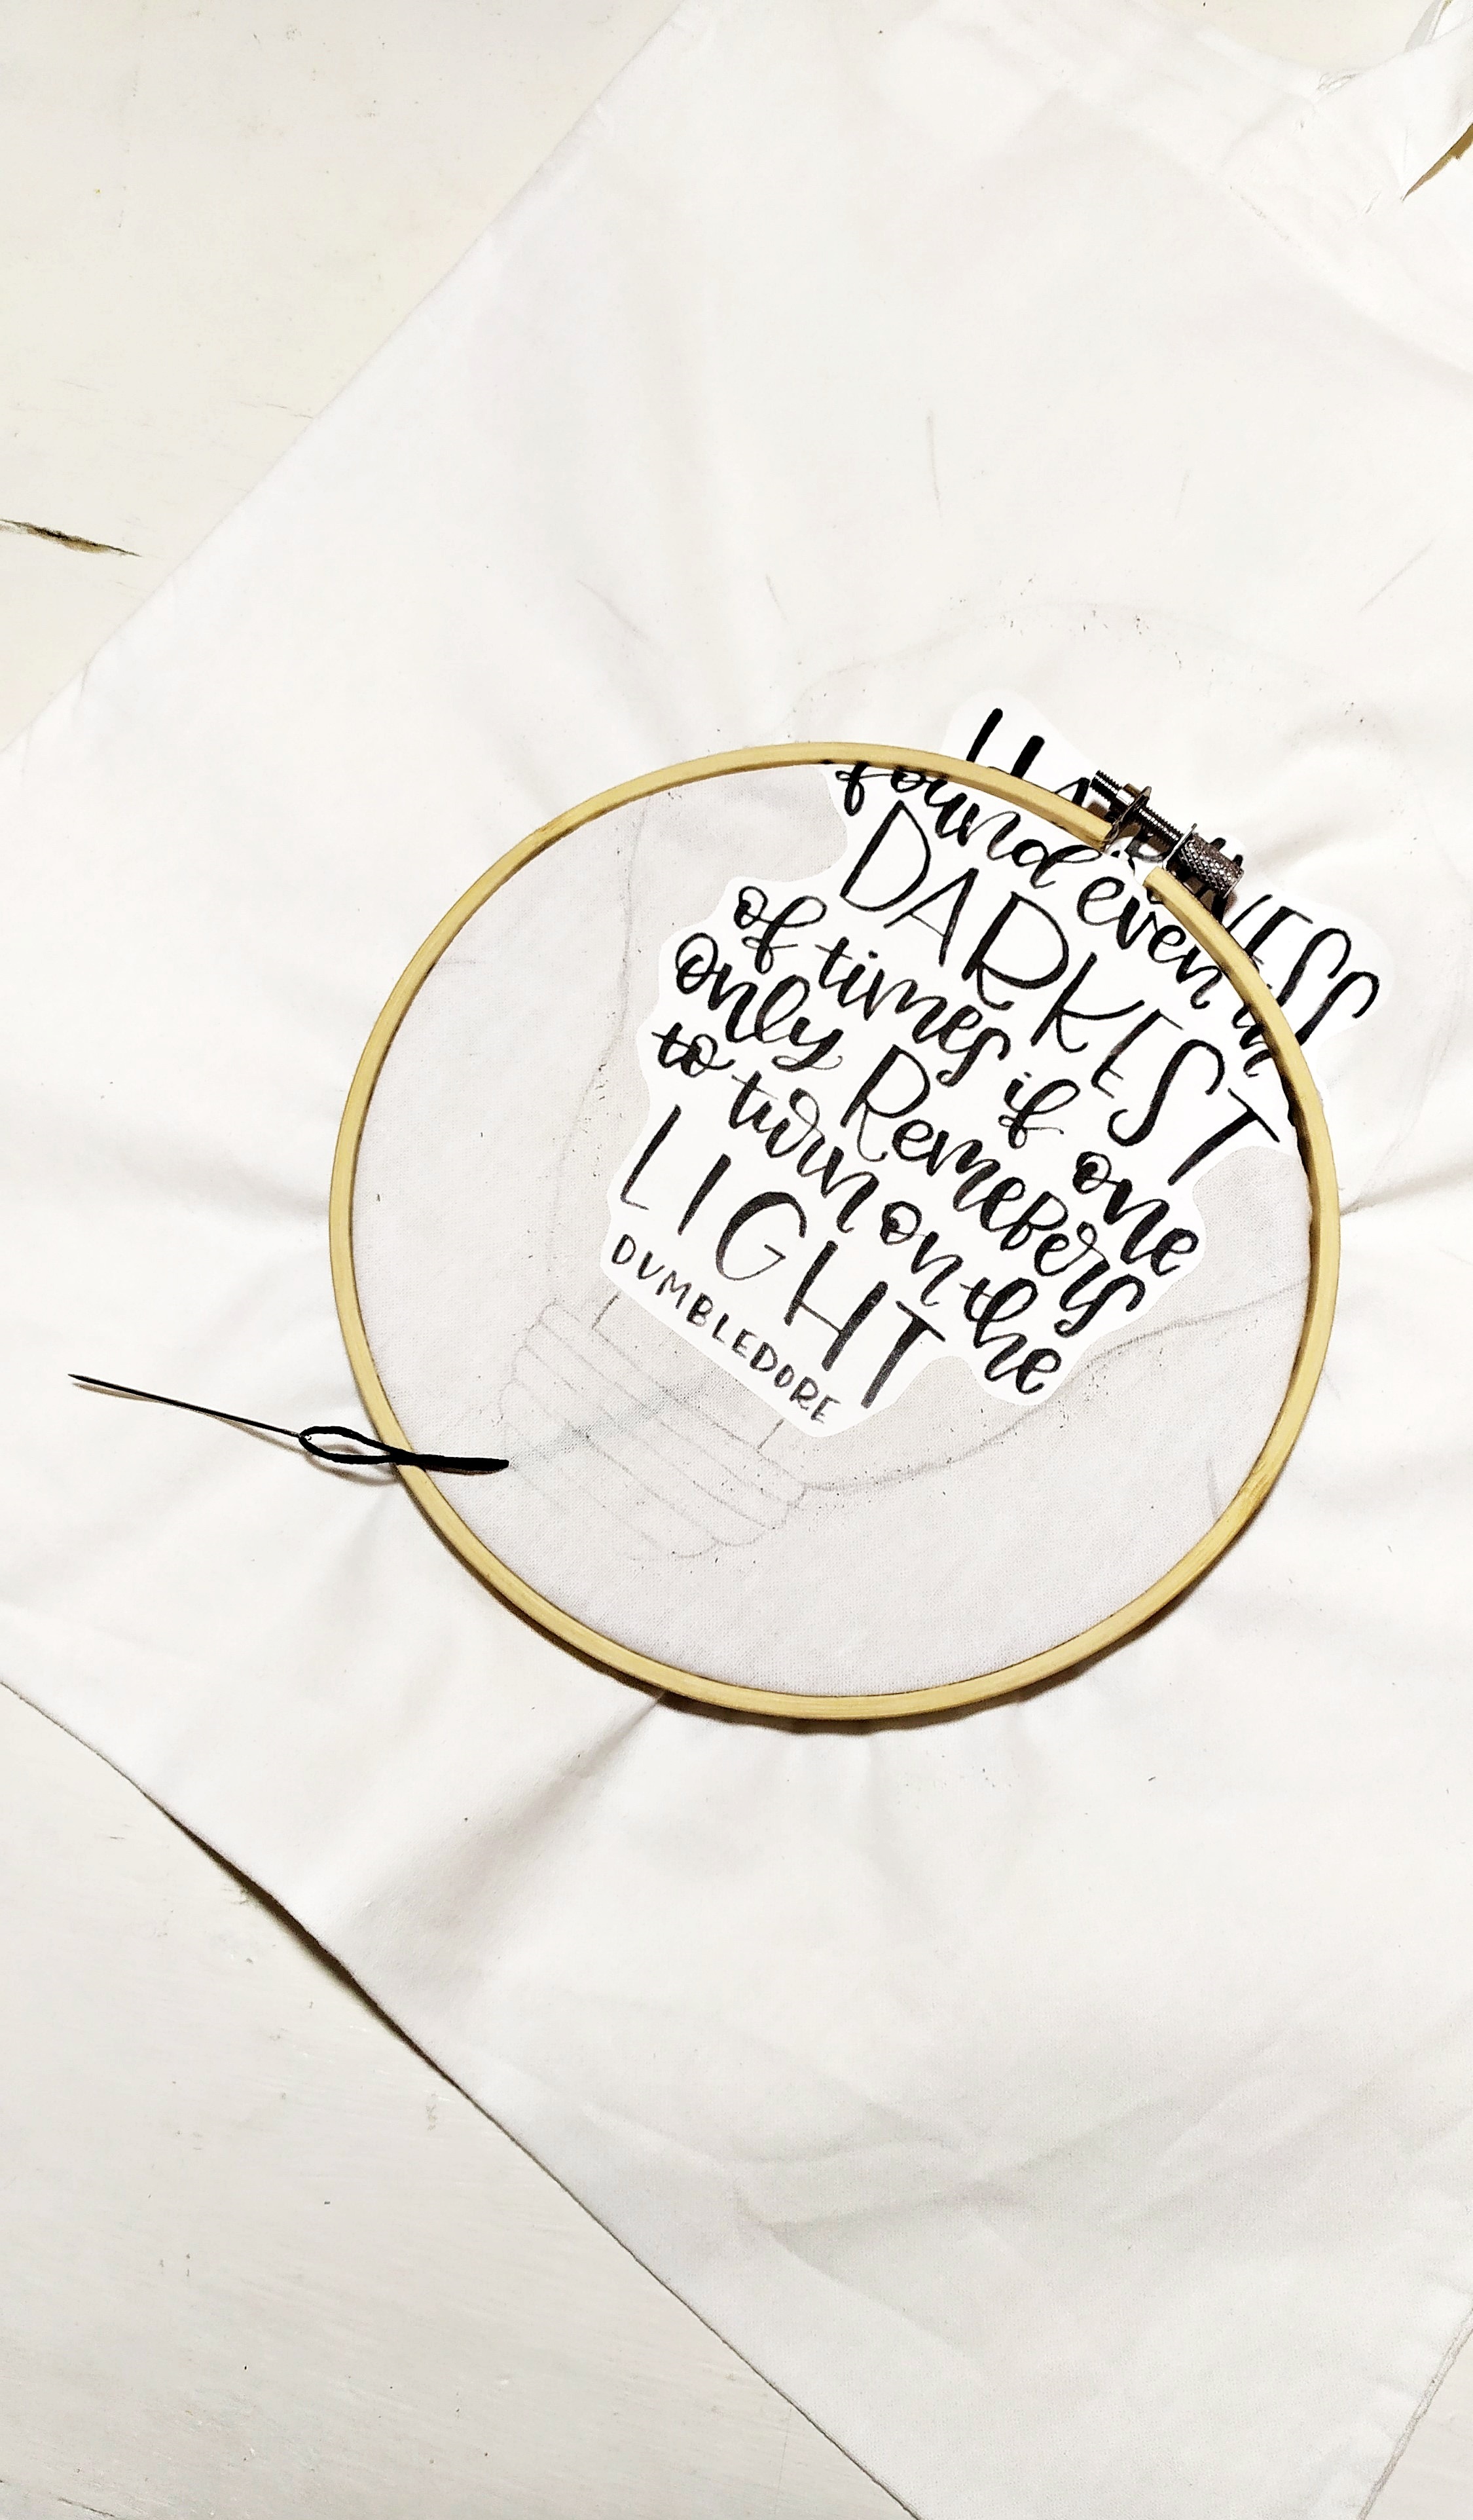 HAPPINESS
found even in
DARKEST
of times if one
only Remebers
to turn on the
LIGHT
DUMBLEDORE